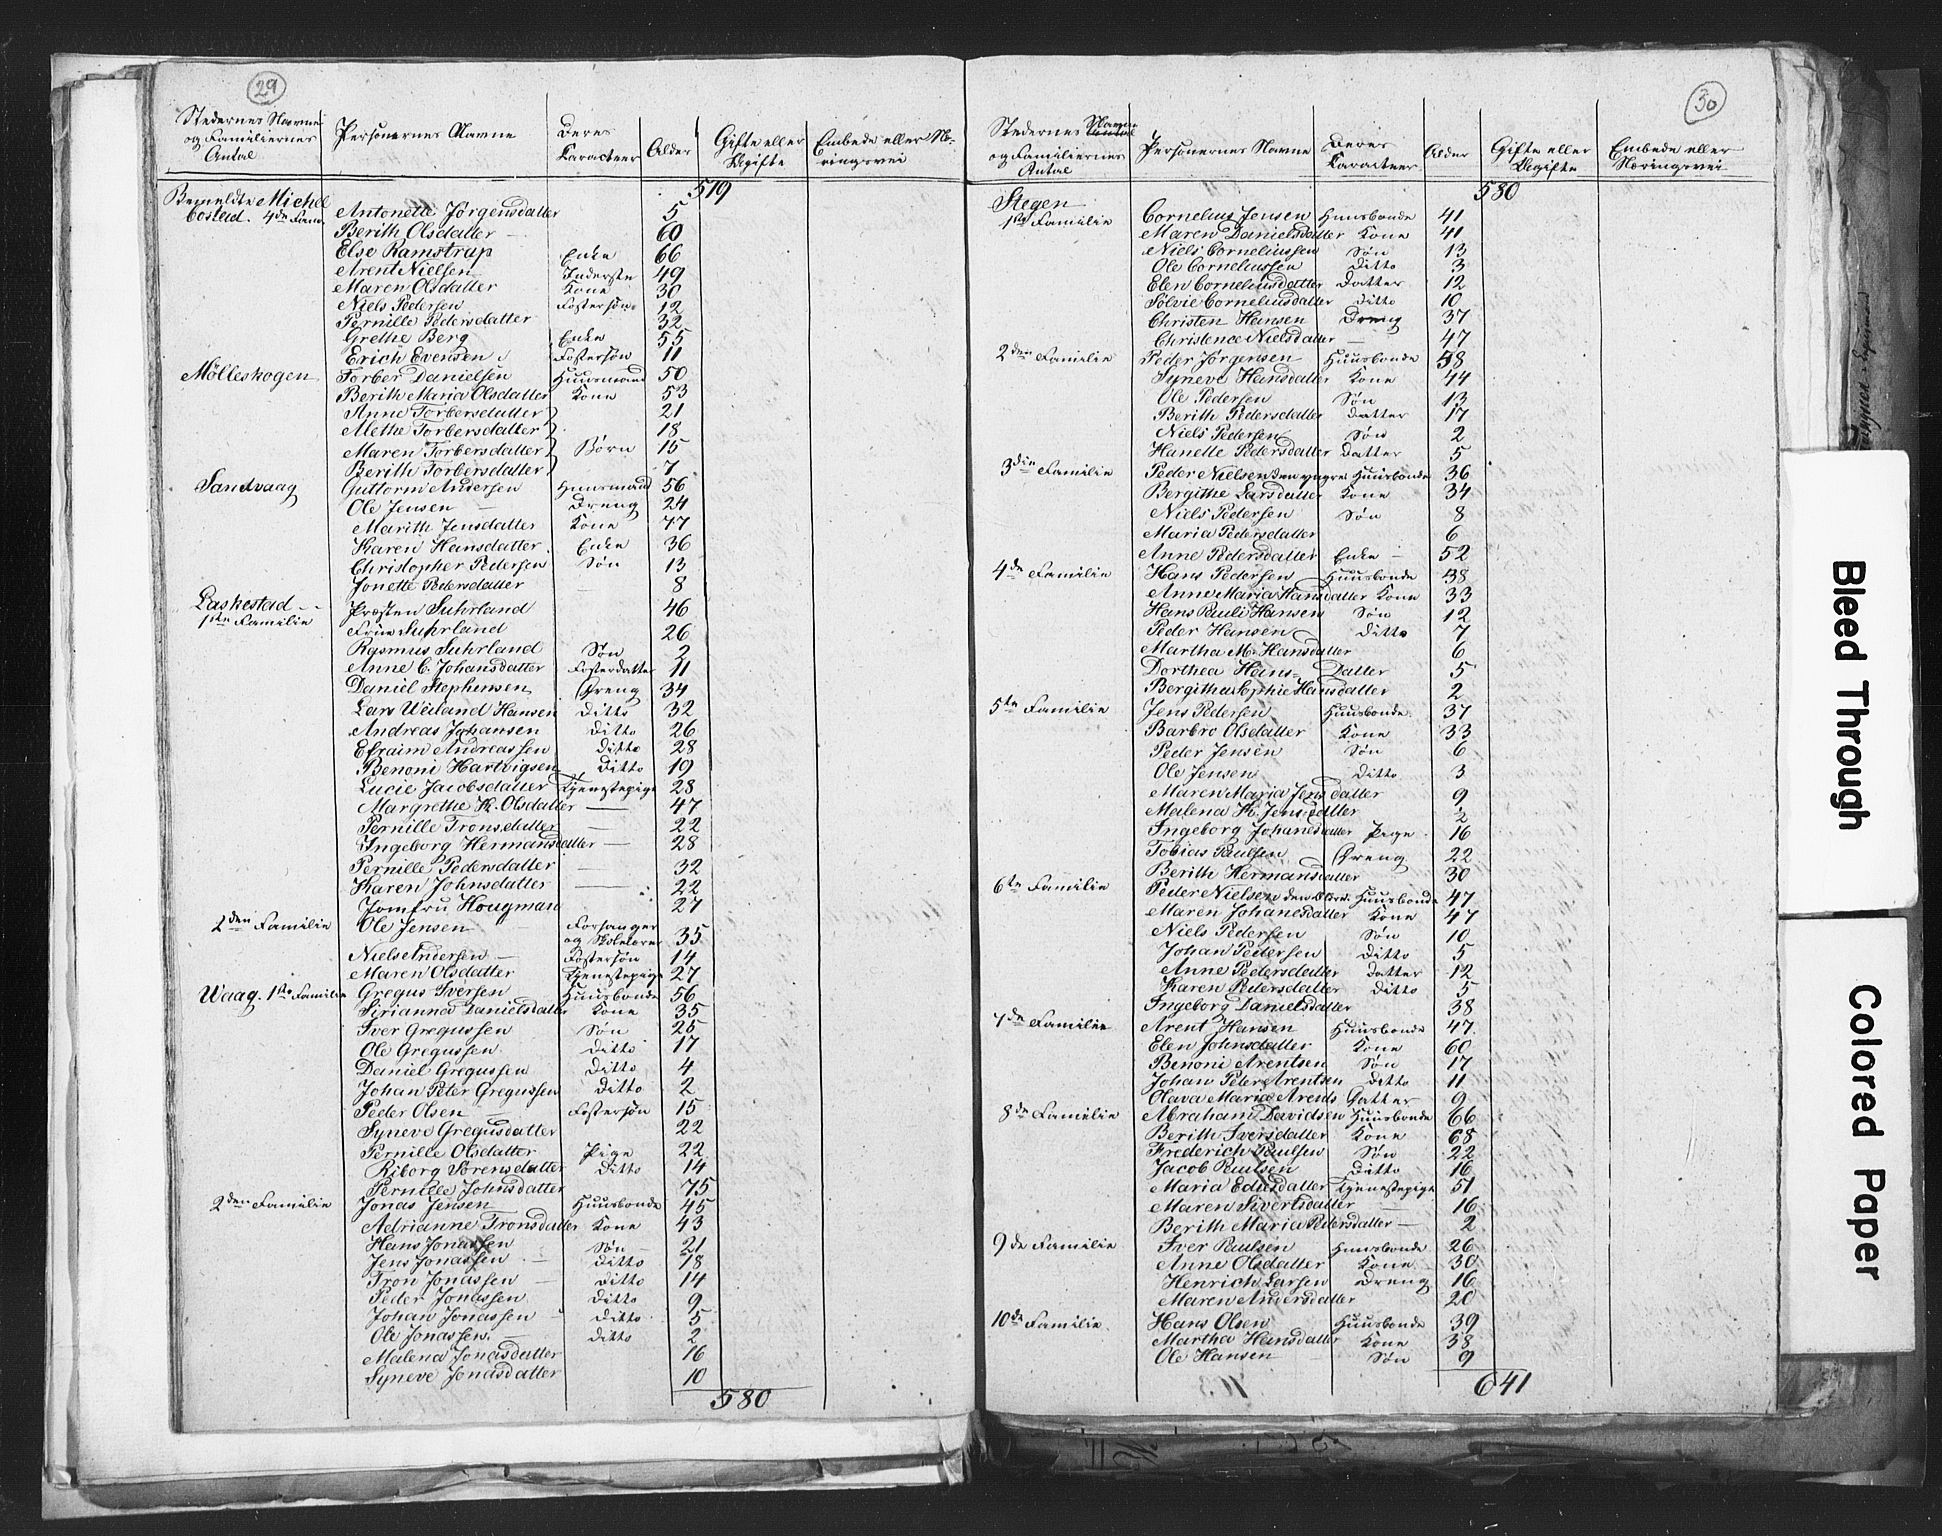 29
Stedernes Navne og Familiernes Antal | Personernes Navne | Deres Caracteer | Alder | Gifte eller Ugifte | Embede eller Næringsvei
519
Bemeldte Michelbostad. 4de Fam. Antonette Jørgensdatter 5
Berith Olsdatter — 60
Else Ramstrup Enke 66
Arent Nielsen Inderste 49
Maren Olsdatter Kone 30
Niels Pedersen Fostersøn 12
Pernille Pedersdatter 32
Grethe Berg Enke 55
Erich Evensen Fostersøn 11
Mølleskogen Torber Danielsen Huusmand 50
Berith Maria Olsdatter Kone 53
Anne Torbersdatter 21
Methe Torbersdatter 18
Maren Torbersdatter Børn 15
Berith Torbersdatter 7
Sandvaag Guttorm Andersen Huusmand 56
Ole Jensen — Dreng 24
Marith Jensdatter Kone 47
Karen Hansdatter Enke 36
Christopher Pedersen Søn 13
Jonette Pedersdatter — 8
Laskestad - - Præsten Suhrland 46
1ste Familie Frue Suhrland 26
Rasmus Suhrland Søn 2
Anne C. Johansdatter Fosterdatter 11
Daniel Stephensen Dreng 34
Lars Weiland Hansen Ditto 32
Andreas Johansen Ditto 26
Efraim Andreassen Ditto 28
Benoni Hartvigsen Ditto 19
Lucie Jacobsdatter Tjenestepige 28
Margrethe K. Olsdatter — 47
Pernille Tronsdatter — 22
Ingeborg Hermansdatter — 28
Pernille Pedersdatter — 32
Karen Johnsdatter — 22
Jomfru Hougman 27
2den Familie Ole Jensen Forsanger og Skolelærer 35
Niels Andersen — Fostersøn 14
Maren Olsdatter Tjenestepige 27
Waag. 1ste Familie Gregus Iversen Huusbonde 56
Sirianna Danielsdatter Kone 35
Iver Gregussen Søn 25
Ole Gregussen Ditto 17
Daniel Gregussen Ditto 4
Johan Peter Gregussen Ditto 2
Peder Olsen — Fostersøn 15
Syneve Gregusdatter 22
Pernille Olsdatter Pige 22
Riborg Sørensdatter Ditto 14
Pernille Johnsdatter 75
2den Familie Jonas Jensen Huusbonde 45
Adrianne Tronsdatter Kone 43
Hans Jonassen Søn 21
Jens Jonassen — Ditto 18
Tron Jonassen — Ditto 14
Peder Jonassen Ditto 9
Johan Jonassen Ditto 5
Ole Jonassen. — Ditto 2
Malena Jonasdatter 16
Syneve Jonasdatter 10
580
30
Stedernes Navne og Familiernes Antal | Personernes Navne | Deres Caracteer | Alder | Gifte eller Ugifte | Embede eller Næringsvei
580
Stegen
1ste Familie Cornelius Jensen Huusbonde 41
Maren Danielsdatter Kone 41
Niels Corneliussen Søn 13
Ole Corneliussen Ditto 3
Elen Corneliusdatter Datter 12
Sølvie Corneliusdatter Ditto 10
Christen Hansen Dreng 37
Christence Nielsdatter — 47
2den Familie Peder Jørgensen Huusbonde 58
Syneve Hansdatter Kone 44
Ole Pedersen Søn 13
Berith Pedersdatter Datter 17
Niels Pedersen Søn 2
Hanette Pedersdatter Datter 5
3die Familie Peder Nielsen den yngre Huusbonde 36
Bergithe Larsdatter Kone 34
Niels Pedersen Søn 8
Maria Pedersdatter 6
Anne Pedersdatter Enke — 52
4de Familie Hans Pedersen Huusbonde 38
Anne Maria Hansdatter Kone 33
Hans Pauli Hansen Søn 12
Peder Hansen Ditto 7
Martha M. Hansdatter 6
Dorthea Hans= Datter 5
Bergitha Sophie Hansdatter 2
5te Familie Jens Pedersen Huusbonde 37
Barbro Olsdatter Kone 33
Peder Jensen Søn 6
Ole Jensen Ditto 3
Maren Maria Jensdatter 9
Malena K. Jensdatter ½
Ingeborg Johanesdatter Pige 16
Tobias Paulsen Dreng 22
Berith Hermansdatter 30
6te Familie Peder Nielsen den Huusbonde 47
Maren Johanesdatter Kone 47
Niels Pedersen Søn 10
Johan Pedersen Ditto 5
Anne Pedersdatter Datter 12
Karen Pedersdatter Ditto 5
Ingeborg Danielsdatter 38
7de Familie Arent Hansen Huusbonde 47
Elen Johnsdatter Kone 60
Benoni Arentsen Søn 17
Johan Peter Arentsen Ditto 11
Olava Maria Arents Datter 9
8de Familie Abraham Davidsen Huusbonde 66
Berith Iversdatter Kone 68
Frederich Paulsen Søn 22
Jacob Paulsen Ditto 16
Maria Edisdatter Tjenestepige 51
Maren Siversdatter — 16
Berith Maria Pedersdatter — 2
9de Familie Iver Paulsen Huusbonde 26
Anne Olsdatter Kone 30
Henrich Larsen Dreng 16
Maren Andersdatter 20
10de Familie Hans Olsen Huusbonde 39
Martha Hansdatter Kone 38
Ole Hansen Søn 9
641
Bleed Through
Colored Paper